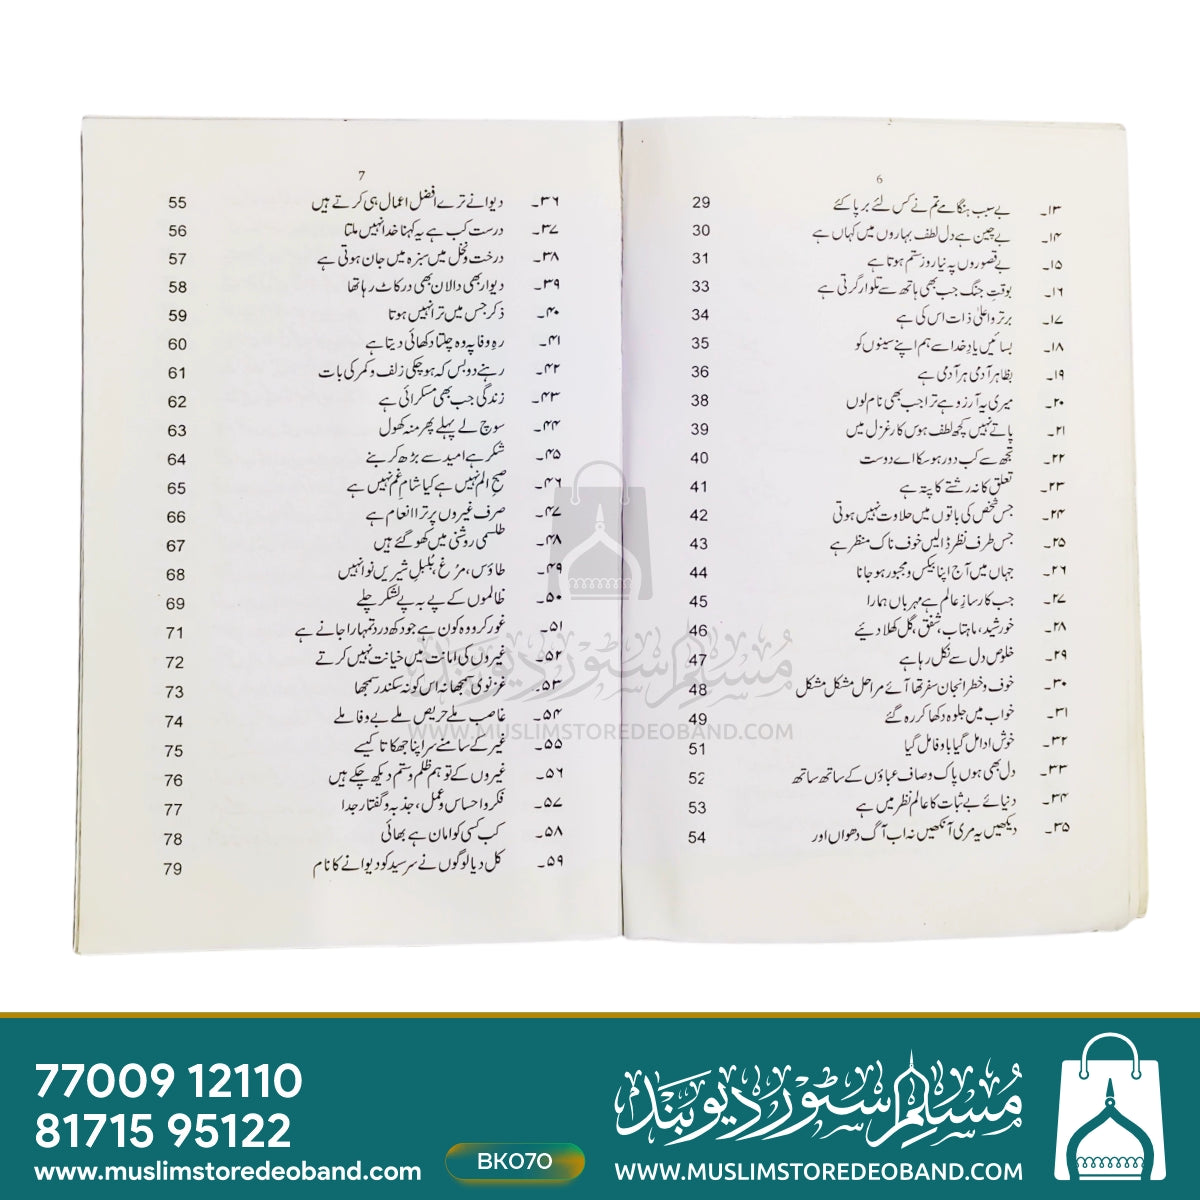 6
۱۳۔ بے سبب ہنگامے تم نے کس لئے برپا کئے 29
۱۴۔ بے چین ہے دل لطف بہاروں میں کہاں ہے 30
۱۵۔ بے قصوروں پہ نیا روز ستم ہوتا ہے 31
۱۶۔ بوقتِ جنگ جب بھی ہاتھ سے تلوار گرتی ہے 33
۱۷۔ برتر و اعلیٰ ذات اس کی ہے 34
۱۸۔ بسائیں یادِ خدا سے ہم اپنے سینوں کو 35
۱۹۔ بظاہر آدمی ہر آدمی ہے 36
۲۰۔ میری یہ آرزو ہے ترا جب بھی نام لوں 38
۲۱۔ پاتے نہیں کچھ لطف ہوس کار غزل میں 39
۲۲۔ تجھ سے کب دور ہو سکا اے دوست 40
۲۳۔ تعلق کا نہ رشتے کا پتہ ہے 41
۲۴۔ جس شخص کی باتوں میں حلاوت نہیں ہوتی 42
۲۵۔ جس طرف نظر ڈالیں خوف ناک منظر ہے 43
۲۶۔ جہاں میں آج اپنا بیکس و مجبور ہو جانا 44
۲۷۔ جب کارسازِ عالم ہے مہرباں ہمارا 45
۲۸۔ خورشید، ماہتاب، شفق، گل کھلا دیئے 46
۲۹۔ خلوص دل سے نکل رہا ہے 47
۳۰۔ خوف و خطر انجان سفر تھا آئے مراحل مشکل مشکل 48
۳۱۔ خواب میں جلوہ دکھا کر رہ گئے 49
۳۲۔ خوش ادا مل گیا باوفا مل گیا 51
۳۳۔ دل بھی ہوں پاک و صاف عباؤں کے ساتھ ساتھ 52
۳۴۔ دنیائے بے ثبات کا عالم نظر میں ہے 53
۳۵۔ دیکھیں یہ مری آنکھیں نہ اب آگ دھواں اور 54
7
۳۶۔ دیوانے ترے افضل اعمال ہی کرتے ہیں 55
۳۷۔ درست کب ہے یہ کہنا خدا نہیں ملتا 56
۳۸۔ درخت و نخل میں سبزہ میں جان ہوتی ہے 57
۳۹۔ دیوار بھی دالان بھی در کاٹ رہا تھا 58
۴۰۔ ذکر جس میں ترا نہیں ہوتا 59
۴۱۔ رہِ وفا پہ وہ چلتا دکھائی دیتا ہے 60
۴۲۔ رہنے دو بس کہ ہو چکی زلف و کمر کی بات 61
۴۳۔ زندگی جب بھی مسکرائی ہے 62
۴۴۔ سوچ لے پہلے پھر منہ کھول 63
۴۵۔ شکر ہے امید سے بڑھ کر بنے 64
۴۶۔ صبحِ الم نہیں ہے کیا شامِ غم نہیں ہے 65
۴۷۔ صرف غیروں پر ترا انعام ہے 66
۴۸۔ طلسمی روشنی میں کھو گئے ہیں 67
۴۹۔ طاؤس، مرُغ، بُلبلِ شیریں نوا نہیں 68
۵۰۔ ظالموں کے پے بہ پے لشکر چلے 69
۵۱۔ غور کرو وہ کون ہے جو دکھ درد تمہارا جانے ہے 71
۵۲۔ غیروں کی امانت میں خیانت نہیں کرتے 72
۵۳۔ غزنوی سمجھا نہ اس کو نہ سکندر سمجھا 73
۵۴۔ غاصب ملے حریص ملے بے وفا ملے 74
۵۵۔ غیر کے سامنے سر اپنا جھکاتا کیسے 75
۵۶۔ غیروں کے تو ہم ظلم و ستم دیکھ چکے ہیں 76
۵۷۔ فکر و احساس و عمل، جذبہ و گفتار جدا 77
۵۸۔ کب کسی کو امان ہے بھائی 78
۵۹۔ کل دیا لوگوں نے سرسید کو دیوانے کا نام 79
مسلم سٹور دیوبند
WWW.MUSLIMSTOREDEOBAND.COM
77009 12110
81715 95122
www.muslimstoredeoband.com
BK070
مسلم سٹور دیوبند
WWW.MUSLIMSTOREDEOBAND.COM